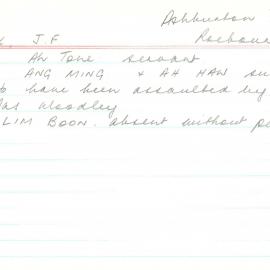 Ashburton
Roebour
J.F
Ah Tone servant
ANG MING & AH HAW su
have been assaulted by
Woodley
LIM BOON. absent without pe